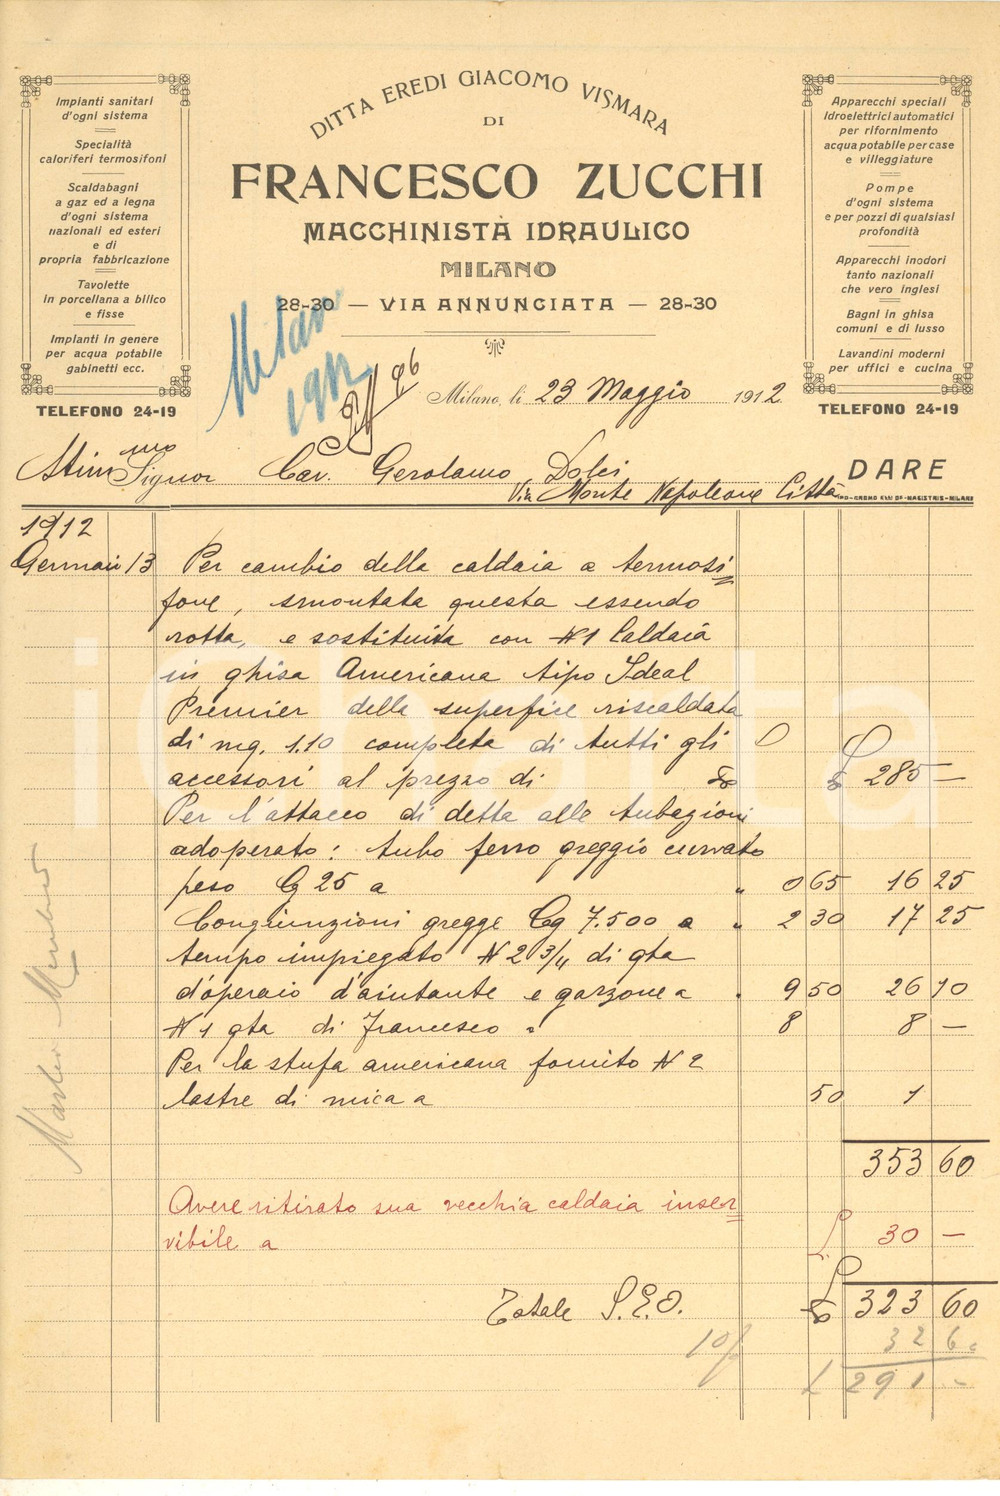 DITTA EREDI GIACOMO VISMARA
DI
FRANCESCO ZUCCHI
MACCHINISTA IDRAULICO
MILANO
28-30 — VIA ANNUNCIATA — 28-30
Impianti sanitari
d'ogni sistema
Specialità
caloriferi termosifoni
Scaldabagni
a gaz ed a legna
d'ogni sistema
nazionali ed esteri
e di
propria fabbricazione
Tavolette
in porcellana a bilico
e fisse
Impianti in genere
per acqua potabile
gabinetti ecc.
TELEFONO 24-19
Apparecchi speciali
Idroelettrici automatici
per rifornimento
acqua potabile per case
e villeggiature
Pompe
d'ogni sistema
e per pozzi di qualsiasi
profondità
Apparecchi inodori
tanto nazionali
che vero inglesi
Bagni in ghisa
comuni e di lusso
Lavandini moderni
per uffici e cucina
TELEFONO 24-19
Milano
1912
96
Milano, li 23 Maggio 1912
Stimmo Signor Cav. Gerolamo Dolci
Via Monte Napoleone Città
DARE
1912
Gennaio 13 Per cambio della caldaia a termosi
fone, smontata questa essendo
rotta, e sostituita con N 1 Caldaia
in ghisa Americana tipo Ideal
Premier della superfice riscaldata
di mq. 1.10 completa di tutti gli
accessori al prezzo di £ 285 —
Per l'attacco di detta alle tubazioni
adoperato: tubo ferro greggio curvato
peso Cg 25 a " 0 65 16 25
Congiunzioni gregge Cg 7.500 a " 2 30 17 25
tempo impiegato N 2 3/4 di gta
d'operaio d'aiutante e garzone a " 9 50 26 10
N 1 gta di Francesco " 8 8 —
Per la stufa americana fornito N 2
lastre di mica a 50 1
353 60
Avere ritirato sua vecchia caldaia inser
vibile a L. 30 —
Totale S.E.O. £ 323 60
10% 32 60
L 291 -
icharta